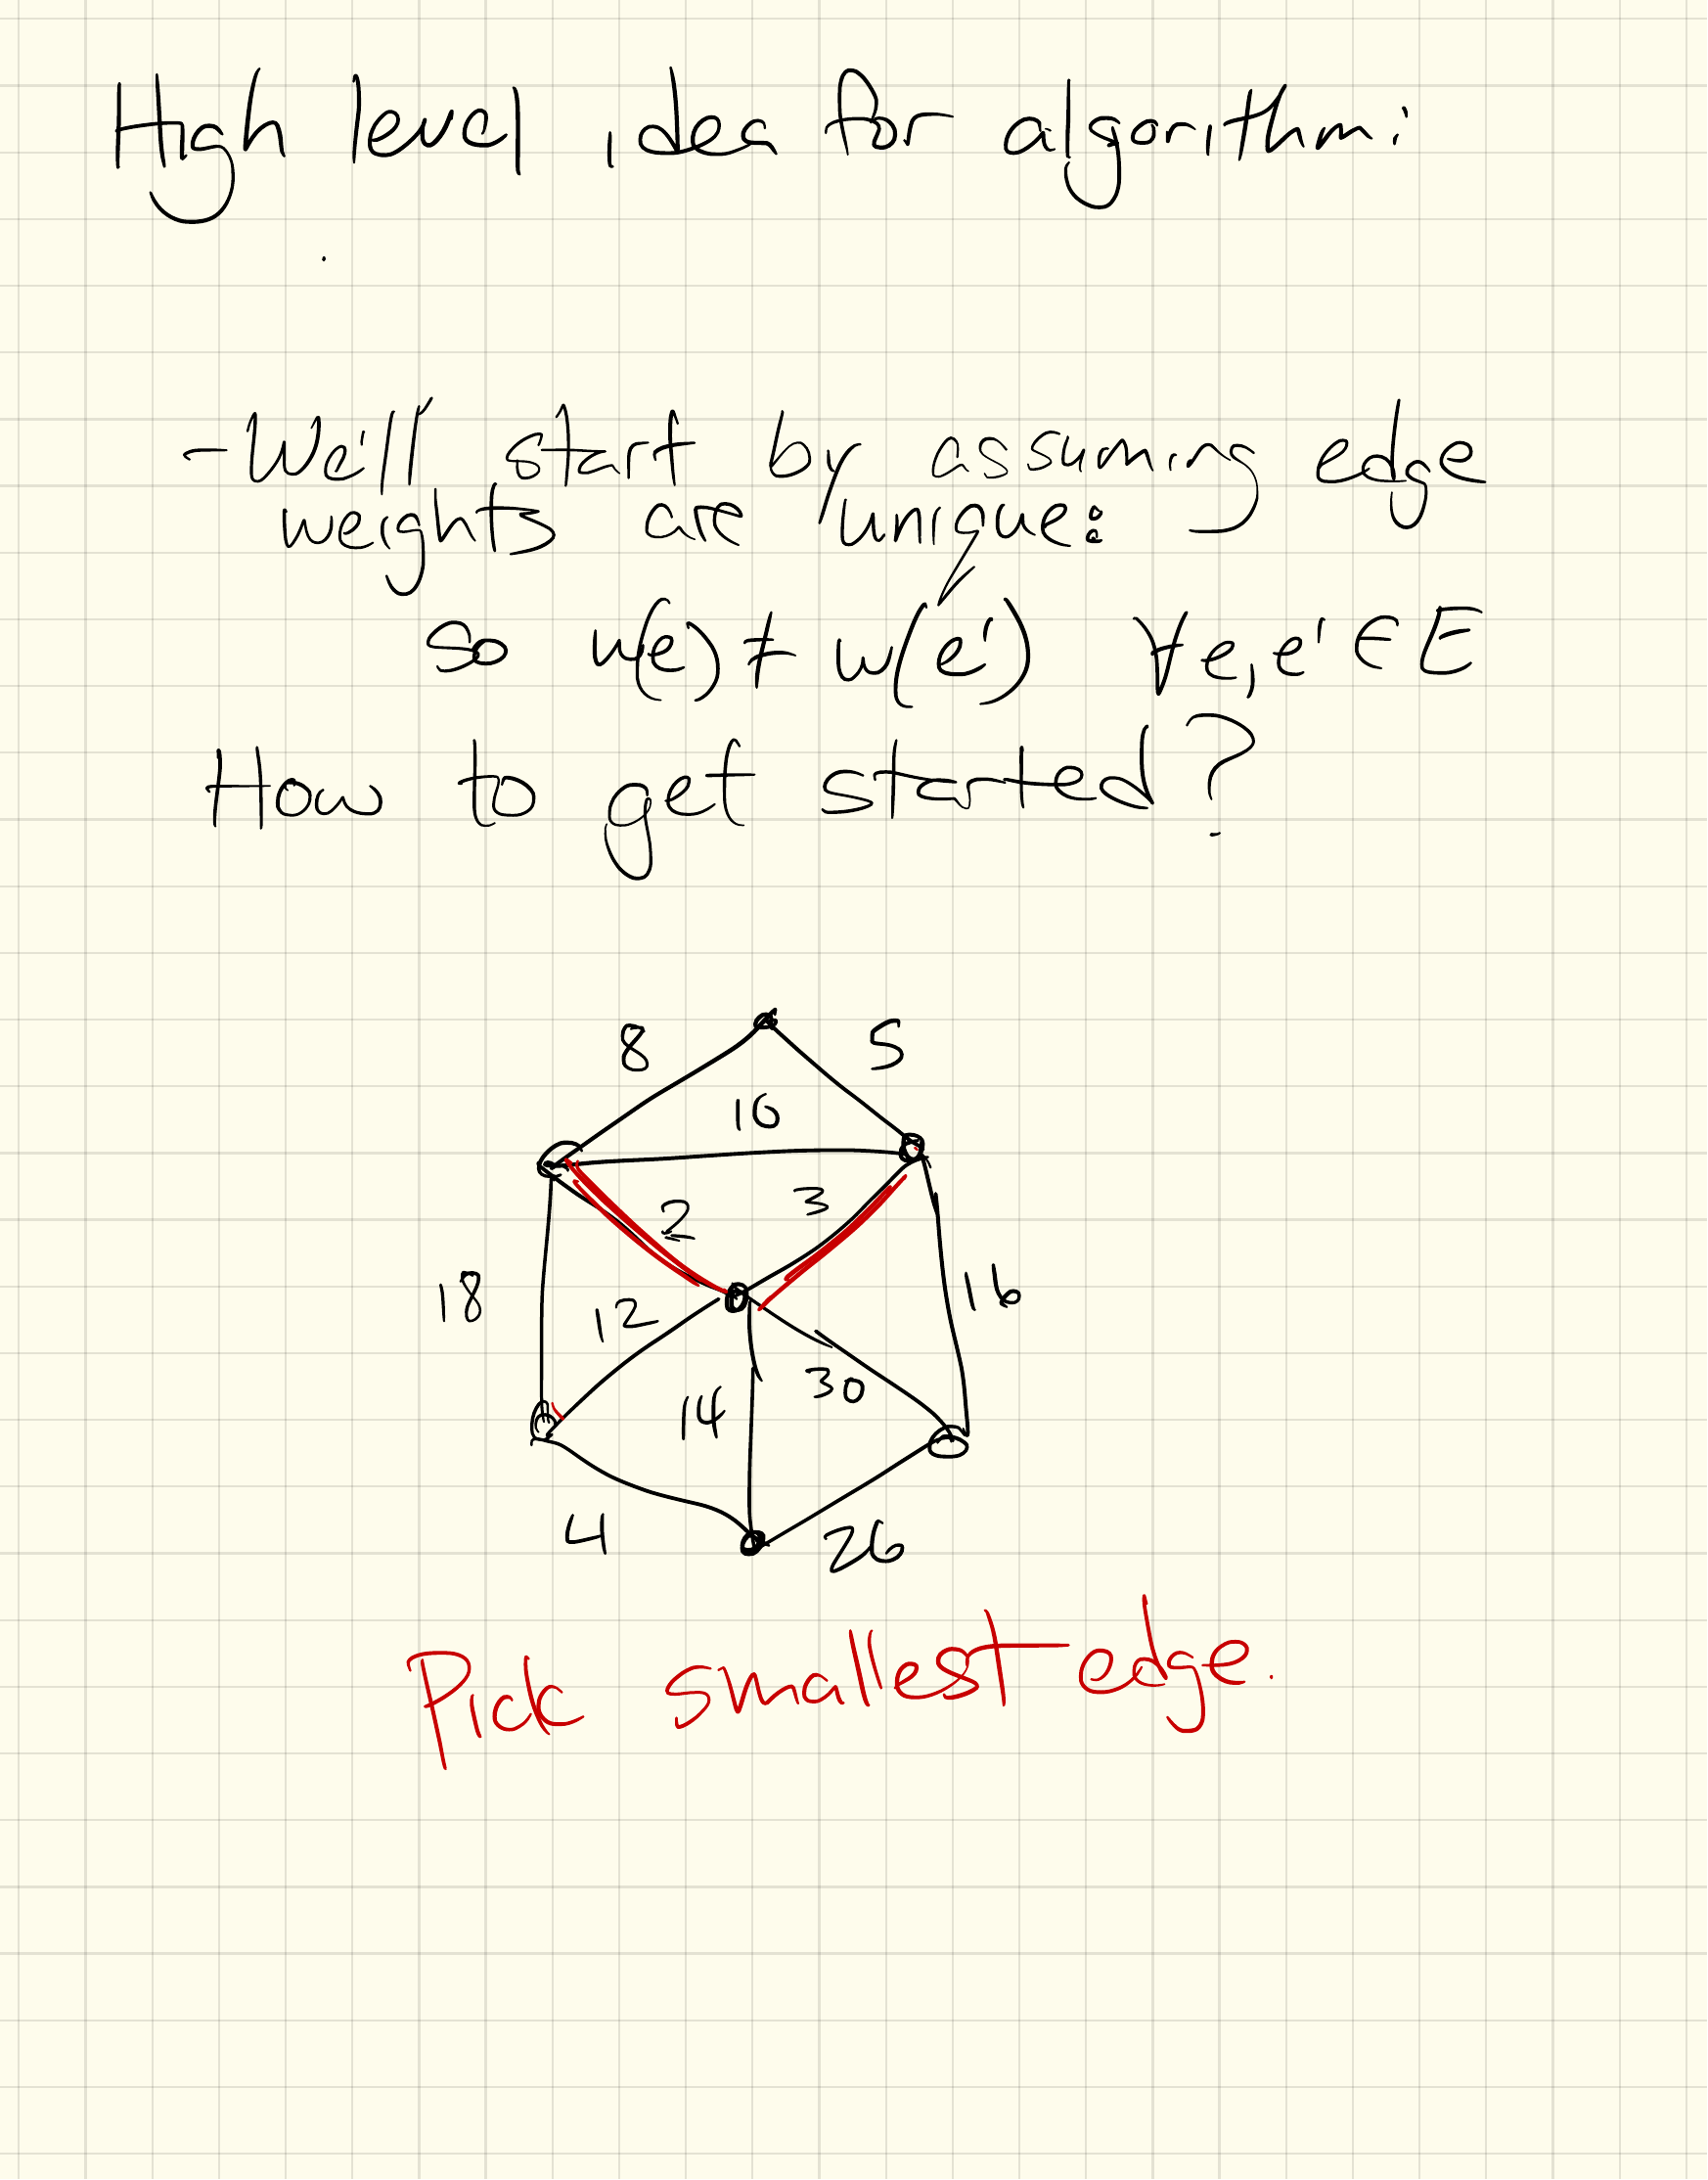 High level idea for algorithm:
- We'll start by assuming edge
weights are unique:
so w(e) ≠ w(e') ∀e,e' ∈ E
How to get started?
8 5
10
2 3
18 12 16
14 30
4 26
Pick smallest edge.